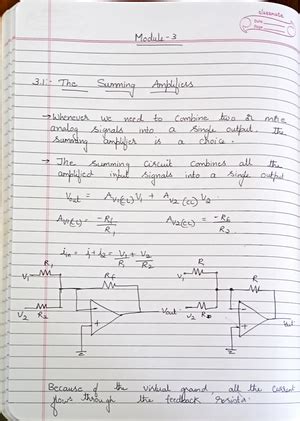 classmate
Date
Page
Module-3
3.1:- The Summing Amplifiers
→ Whenever we need to combine two or more
analog signals into a single output. The
summing amplifier is a choice.
→ The summing circuit combines all the
amplified input signals into a single output
Vout = Av1(CL) V1 + Av2(CL) V2.
Av1(CL) = -Rf/R1 Av2(CL) = -Rf/R2
iin = i1+i2 = V1/R1 + V2/R2
R1 Rf R1 R
V1 V1
V2 R2 Vout V2
Because of the virtual ground, all the current
flows through the feedback